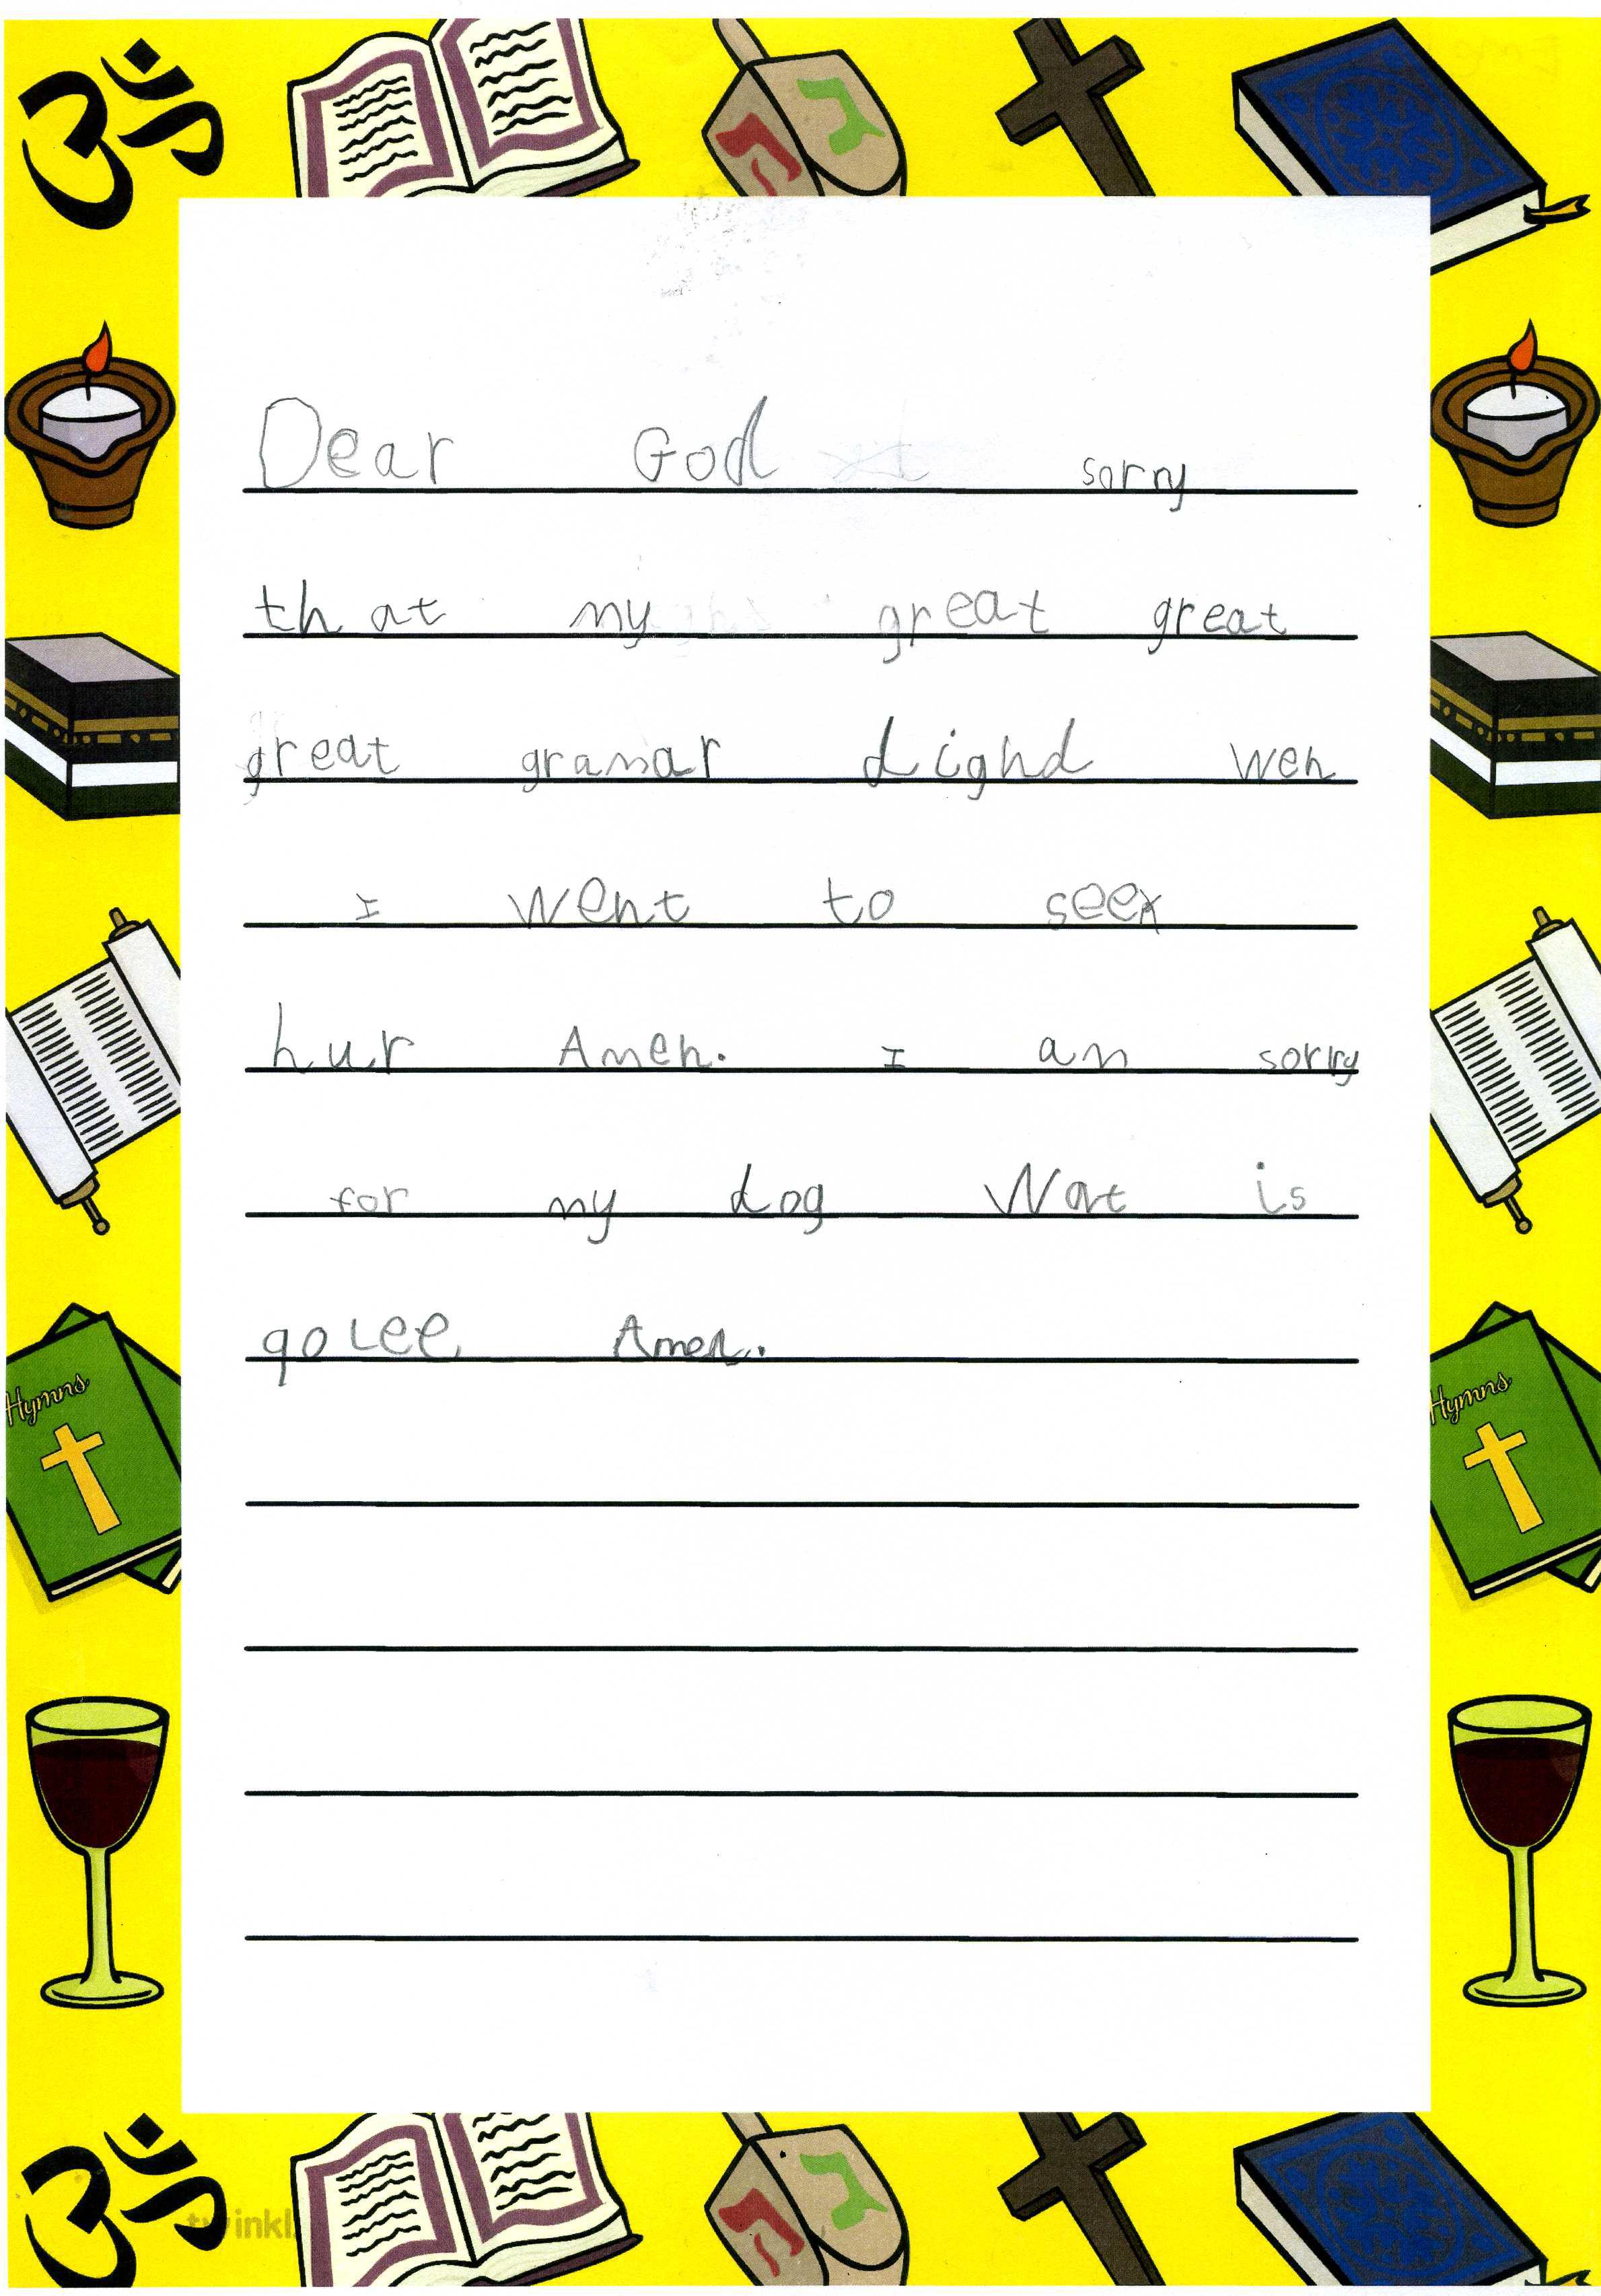 Dear God sorry
that my great great
great gramar dighd weh
I went to see
hur Amen. I am sorry
for my dog Wat is
qoLee Amen.
Hymns
Hymns
twinkl